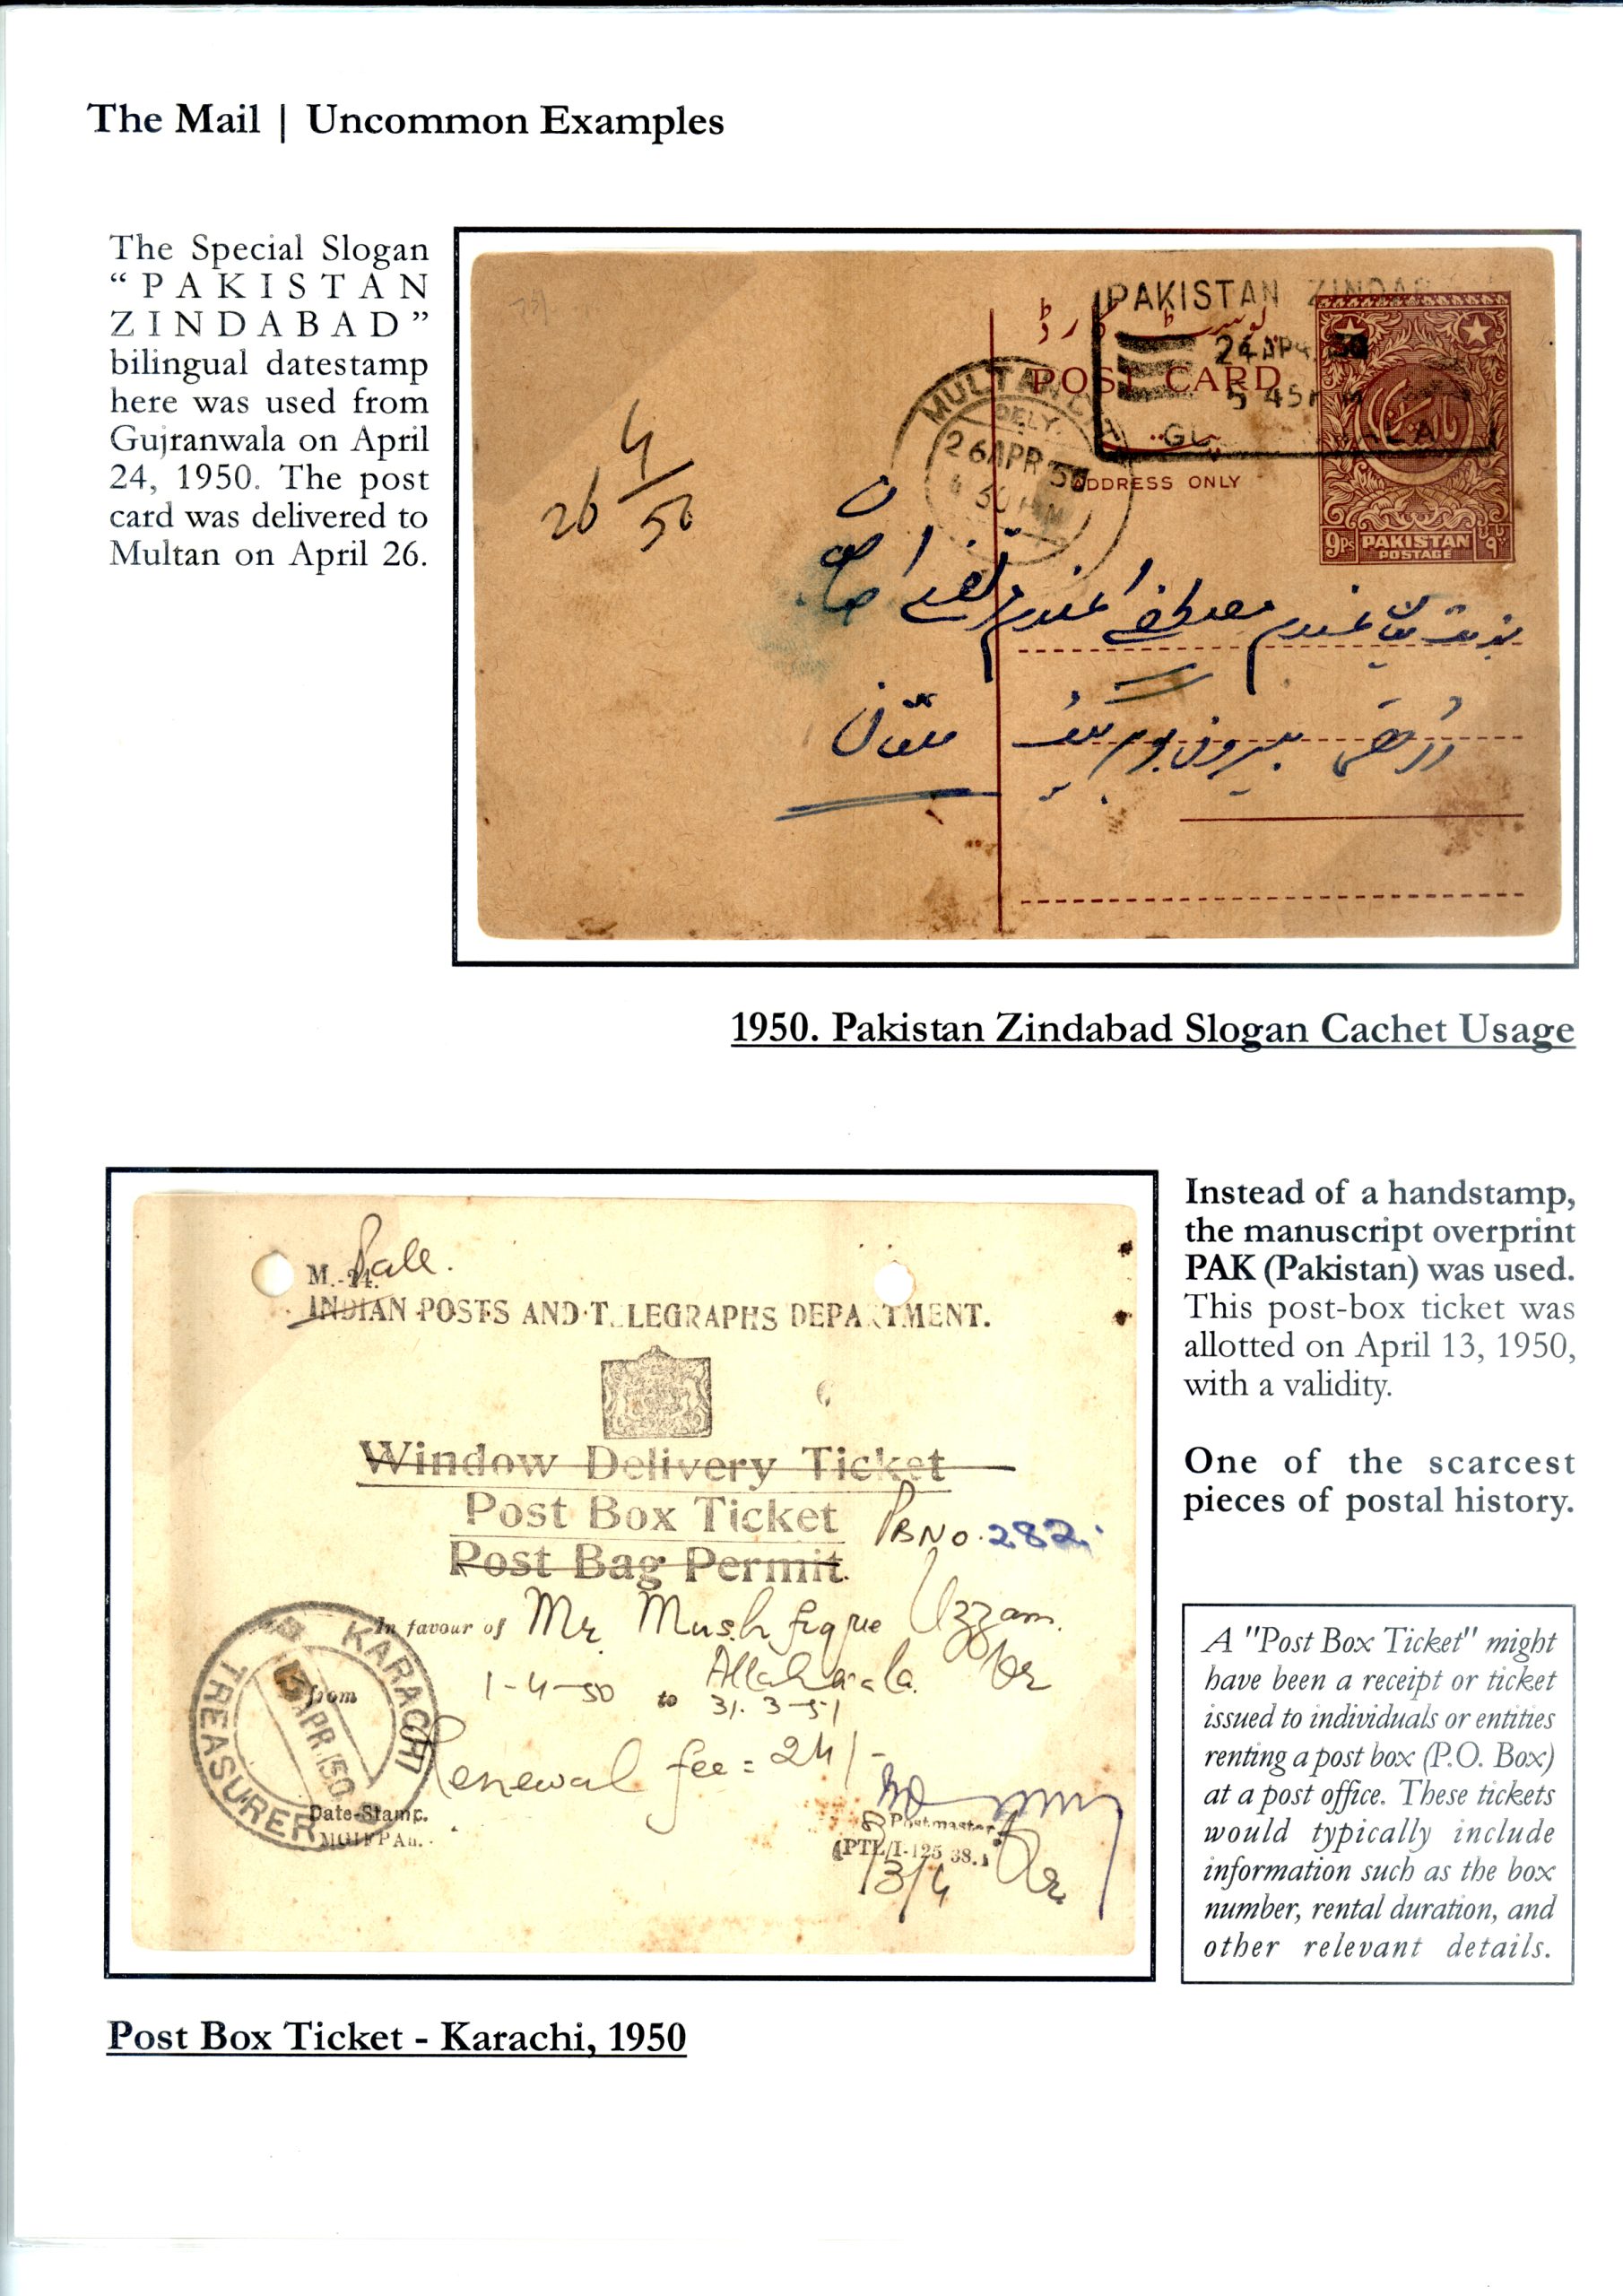 The Mail | Uncommon Examples
The Special Slogan
“PAKISTAN
ZINDABAD”
bilingual datestamp
here was used from
Gujranwala on April
24, 1950. The post
card was delivered to
Multan on April 26.
PAKISTAN ZINDABA
پوسٹ کارڈ
24 APR 50
POST CARD
5 45 PM
ADDRESS ONLY
MULTAN CITY
DELY.
26 APR 50
4 30 PM
9Ps PAKISTAN
POSTAGE
26 4/50
مخدوم مصطفے
بیرون بوہڑ گیٹ ملتان
1950. Pakistan Zindabad Slogan Cachet Usage
M.-24.
INDIAN POSTS AND TELEGRAPHS DEPARTMENT.
Window Delivery Ticket
Post Box Ticket PB No. 282.
Post Bag Permit.
In favour of Mr. Mushfique Uzzam.
Allahwala.
from 1-4-50 to 31.3-51
Renewal fee = 24/-
KARACHI
TREASURER
13 APR 50
Date-Stamp. Postmaster
MGIFPAh. (PTL/I-125 38.)
13/4
Instead of a handstamp,
the manuscript overprint
PAK (Pakistan) was used.
This post-box ticket was
allotted on April 13, 1950,
with a validity.
One of the scarcest
pieces of postal history.
A "Post Box Ticket" might
have been a receipt or ticket
issued to individuals or entities
renting a post box (P.O. Box)
at a post office. These tickets
would typically include
information such as the box
number, rental duration, and
other relevant details.
Post Box Ticket - Karachi, 1950